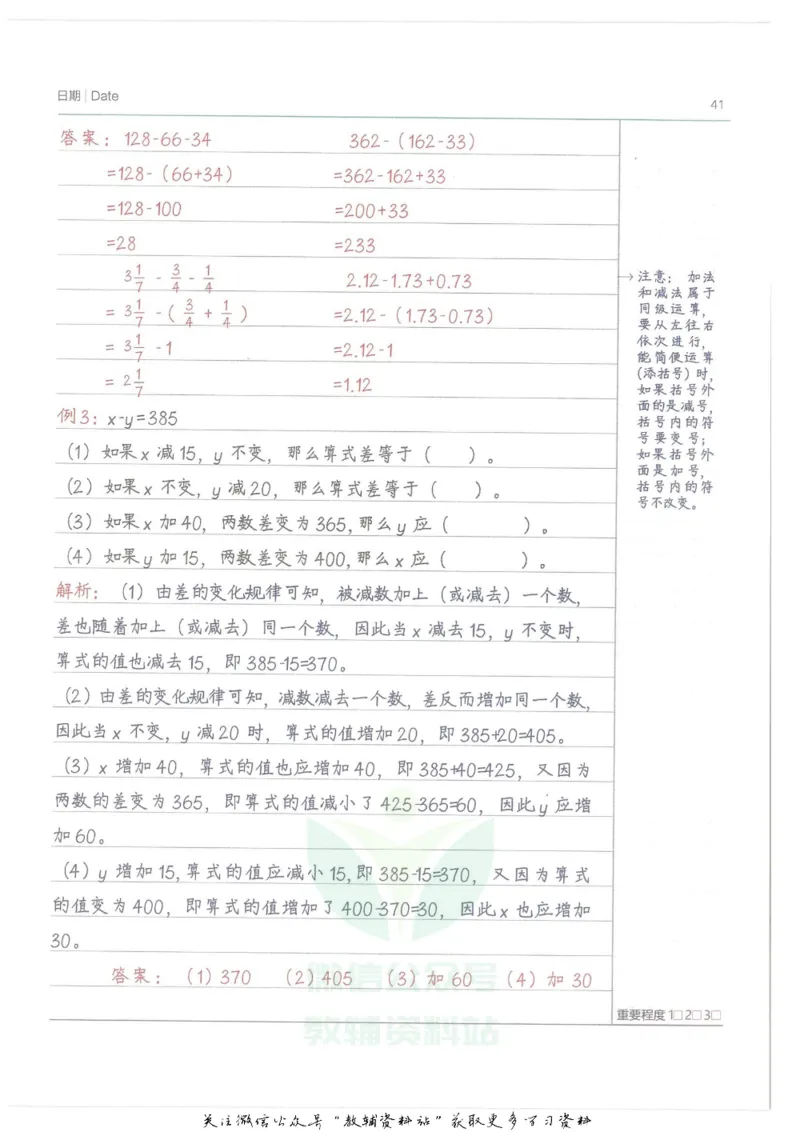 日期 | Date
41
答案： 128-66-34 362-（162-33）
=128-（66+34） =362-162+33
=128-100 =200+33
=28 =233
3 1/7 - 3/4 - 1/4 2.12-1.73+0.73
= 3 1/7 -（3/4 + 1/4） =2.12-（1.73-0.73）
= 3 1/7 -1 =2.12-1
= 2 1/7 =1.12
→注意： 加法
和减法属于
同级运算，
要从左往右
依次进行，
能简便运算
(添括号)时，
如果括号外
面的是减号，
括号内的符
号要变号；
如果括号外
面是加号，
括号内的符
号不改变。
例3：x-y=385
（1）如果x 减15，y 不变，那么算式差等于（ ）。
（2）如果x 不变，y 减20，那么算式差等于（ ）。
（3）如果x 加40，两数差变为365,那么y 应（ ）。
（4）如果y 加15，两数差变为400,那么x 应（ ）。
解析：（1）由差的变化规律可知，被减数加上（或减去）一个数，
差也随着加上（或减去）同一个数，因此当x 减去15，y 不变时，
算式的值也减去15，即385-15=370。
（2）由差的变化规律可知，减数减去一个数，差反而增加同一个数，
因此当x 不变，y 减20 时，算式的值增加20，即385+20=405。
（3）x 增加40，算式的值也应增加40，即385+40=425，又因为
两数的差变为365，即算式的值减小了425-365=60，因此y 应增
加60。
（4）y 增加15,算式的值应减小15,即385-15=370，又因为算式
的值变为400，即算式的值增加了400-370=30，因此x 也应增加
30。
答案：（1）370 （2）405 （3）加60 （4）加30
重要程度 1□ 2□ 3□
微信公众号
教辅资料站
关注微信公众号“教辅资料站”获取更多学习资料